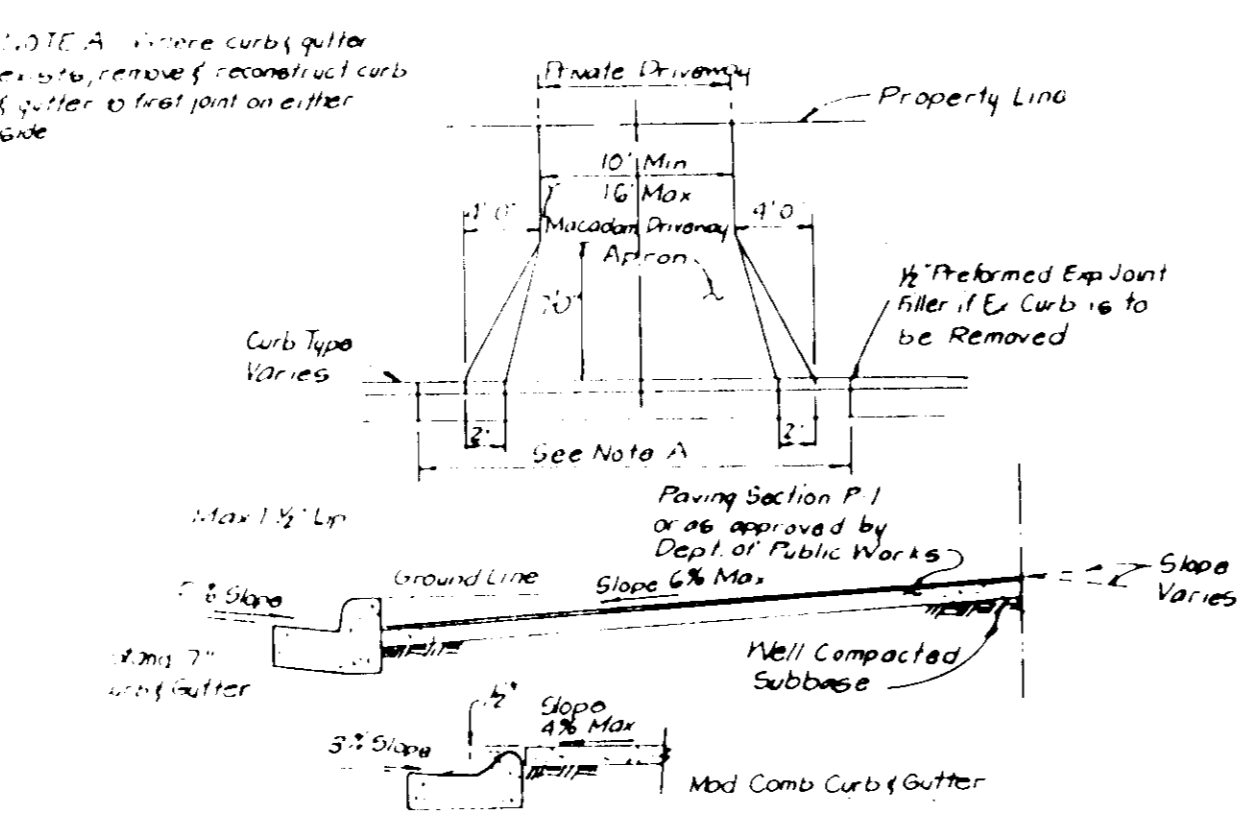 NOTE A Where curb & gutter
exists, remove & reconstruct curb
& gutter to first joint on either
side
Private Driveway
Property Line
10' Min
16' Max
4'0"
Macadam Driveway
4'0"
Apron
7'0"
½" Preformed Exp Joint
Filler if Ex Curb is to
be Removed
Curb Type
Varies
2'
2'
See Note A
Max 1½" Lip
Paving Section P-1
or as approved by
Dept. of Public Works
Ground Line
Slope 6% Max
Slope
Varies
Slope
7"
Curb & Gutter
Well Compacted
Subbase
½"
Slope
4% Max
3% Slope
Mod Comb Curb & Gutter